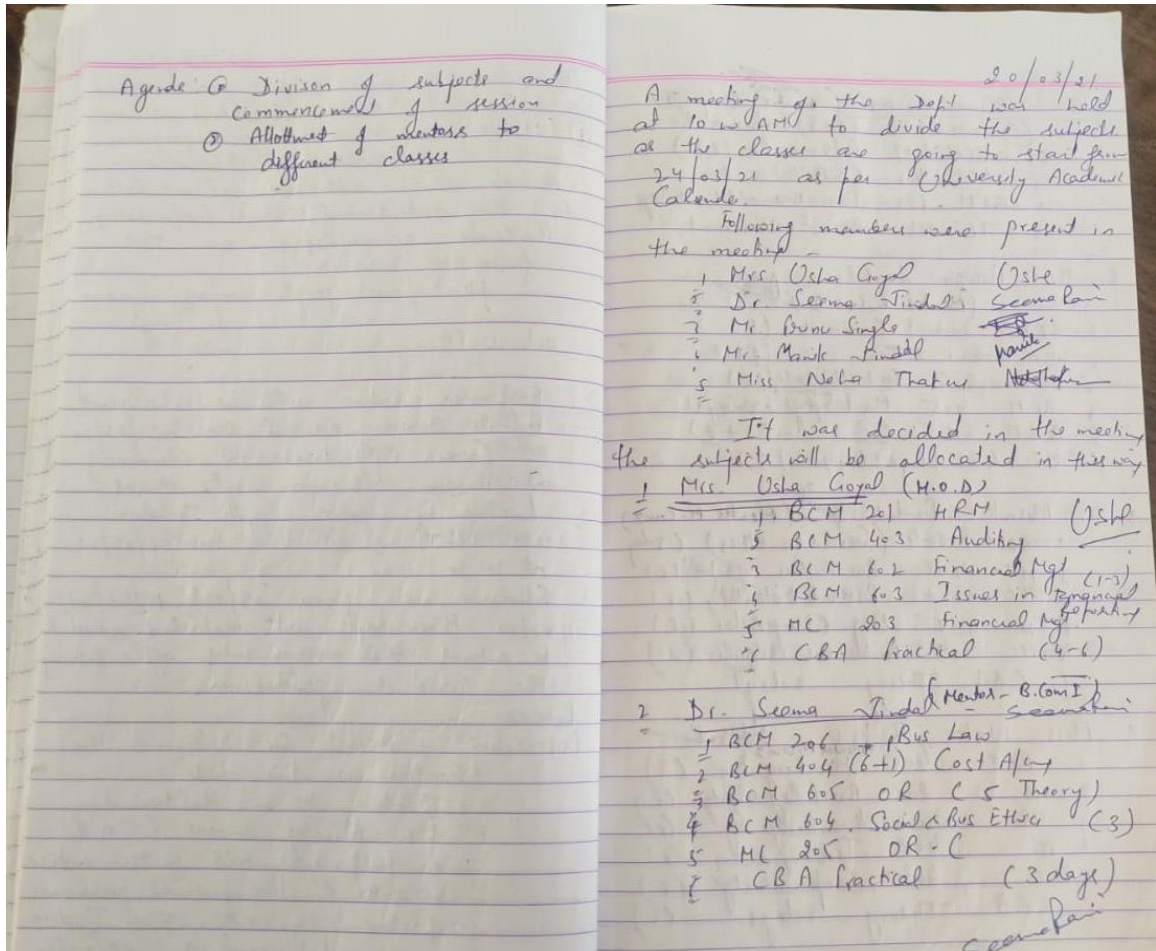 Agende: ① Divison of subjects and
commencement of session
② Allothment of mentors to
different classes
20/03/21
A meeting of the Deptt was held
at 10 AM to divide the subjects
as the classes are going to start from
24/03/21 as per University Academic
Calende.
Following members were present in
the meeting -
1 Mrs Usha Goyal Ushe
2 Dr. Seema Jindal SeemaRani
3 Mr. Single
4 Mr. Manik Jindal Manik
5 Miss Neha Thakur
It was decided in the meeting
the subjects will be allocated in this way
1 Mrs. Usha Goyal (H.O.D)
1 BCM 201 HRM Ushe
2 BCM 403 Auditing
3 BCM 602 Financial Mgt (1-3)
4 BCM 603 Issues in Financial
Reporting
5 MC 203 Financial Mgt
6 CBA Practical (4-6)
2 Dr. Seema Jindal (Mentor - B.Com I)
SeemaRani
1 BCM 206 Bus Law
2 BCM 404 (6+1) Cost A/cing
3 BCM 605 OR (5 Theory)
4 BCM 604. Social & Bus Ethics (3)
5 MC 205 OR - C
CBA Practical (3 days)
SeemaRani